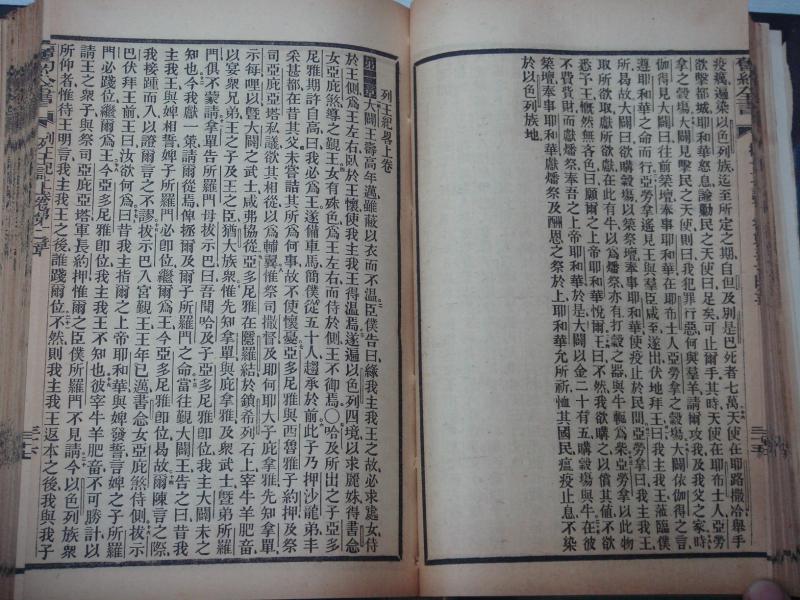 疫癘遍染以色列族迄至所定之期自但及別是巴死者七萬天使在耶路撒冷舉手
欲擊都城耶和華怒息諭勦民之天使曰足矣可止爾手其時天使在耶布士人亞勞
拿之穀場大闢見擊民之天使則曰我犯罪行惡何與羣羊請爾攻我及我父之家時
伽得見大闢曰往前築壇奉事耶和華在耶布士人亞勞拿之穀場大闢依伽得之言
遵耶和華之命而行亞勞拿遙見王與羣臣咸至遂出伏地拜王曰我主我王蒞臨僕
所曷故大闢曰欲購穀場以築祭壇奉事耶和華使疫止於民間亞勞拿曰我主我王
取所欲取獻所欲獻在此有牛以爲燔祭亦有打穀之器與牛軛爲柴亞勞拿以此物
悉予王慨然無吝色曰願爾之上帝耶和華悅爾王曰不然我欲購之以償其値不欲
不費貲財而獻燔祭奉吾之上帝耶和華於是大闢以金二十有五購穀場與牛在彼
築壇奉事耶和華獻燔祭及酬恩之祭於上耶和華允所祈恤其國民瘟疫止息不染
於以色列族地
列王紀畧上卷
第一章大闢王壽高年邁雖蔽以衣而不溫臣僕告曰緣我主我王之故必求處女侍
於王側爲王左右臥於王懷使我主我王得溫焉遂遍以色列四境以求麗妹得書念
女亞庇煞導之覲王女有殊色爲王左右而侍於側王不御焉〇哈及所出之子亞多
尼雅期許自高曰我必爲王遂備車馬簡僕從五十人趨承於前此子乃押沙龍弟丰
采甚都在昔其父未嘗詰其所爲何事故不使懷憂亞多尼雅與西魯雅子約押及祭
司亞庇亞塔私議欲其相從以爲輔翼惟祭司撒督及耶何耶大子庇拿雅先知拿單
示每哩以曁大闢之武士咸弗協從亞多尼雅在隱羅結於鎖希列石上宰牛羊肥畜
以宴衆兄弟王之子及王之臣猶大族衆惟先知拿單與庇拿雅及衆武士曁弟所羅
門俱不蒙請拿單告所羅門母拔示巴曰吾聞哈及子亞多尼雅卽位我主大闢未之
知也今我獻一策請爾從焉俾救爾及爾子所羅門之命當往覲大闢王告之曰昔我
主我王與婢相誓婢子所羅門必卽位繼爾爲王今亞多尼雅卽位曷故爾陳言之際
我接踵而入以證爾言之不謬拔示巴入宮覲王王年已邁書念女亞庇煞侍側拔示
巴伏拜王前王曰汝欲何爲曰昔我主指爾之上帝耶和華與婢發誓言婢之子所羅
門必踐位繼爾爲王今亞多尼雅卽位我主我王不知也彼宰牛羊肥畜不可勝計以
請王之衆子與祭司亞庇亞塔軍長約押惟爾之臣僕所羅門不見請今以色列族衆
所仰者惟待王明言我主我王之後誰踐爾位不然則我主我王返本之後我與我子